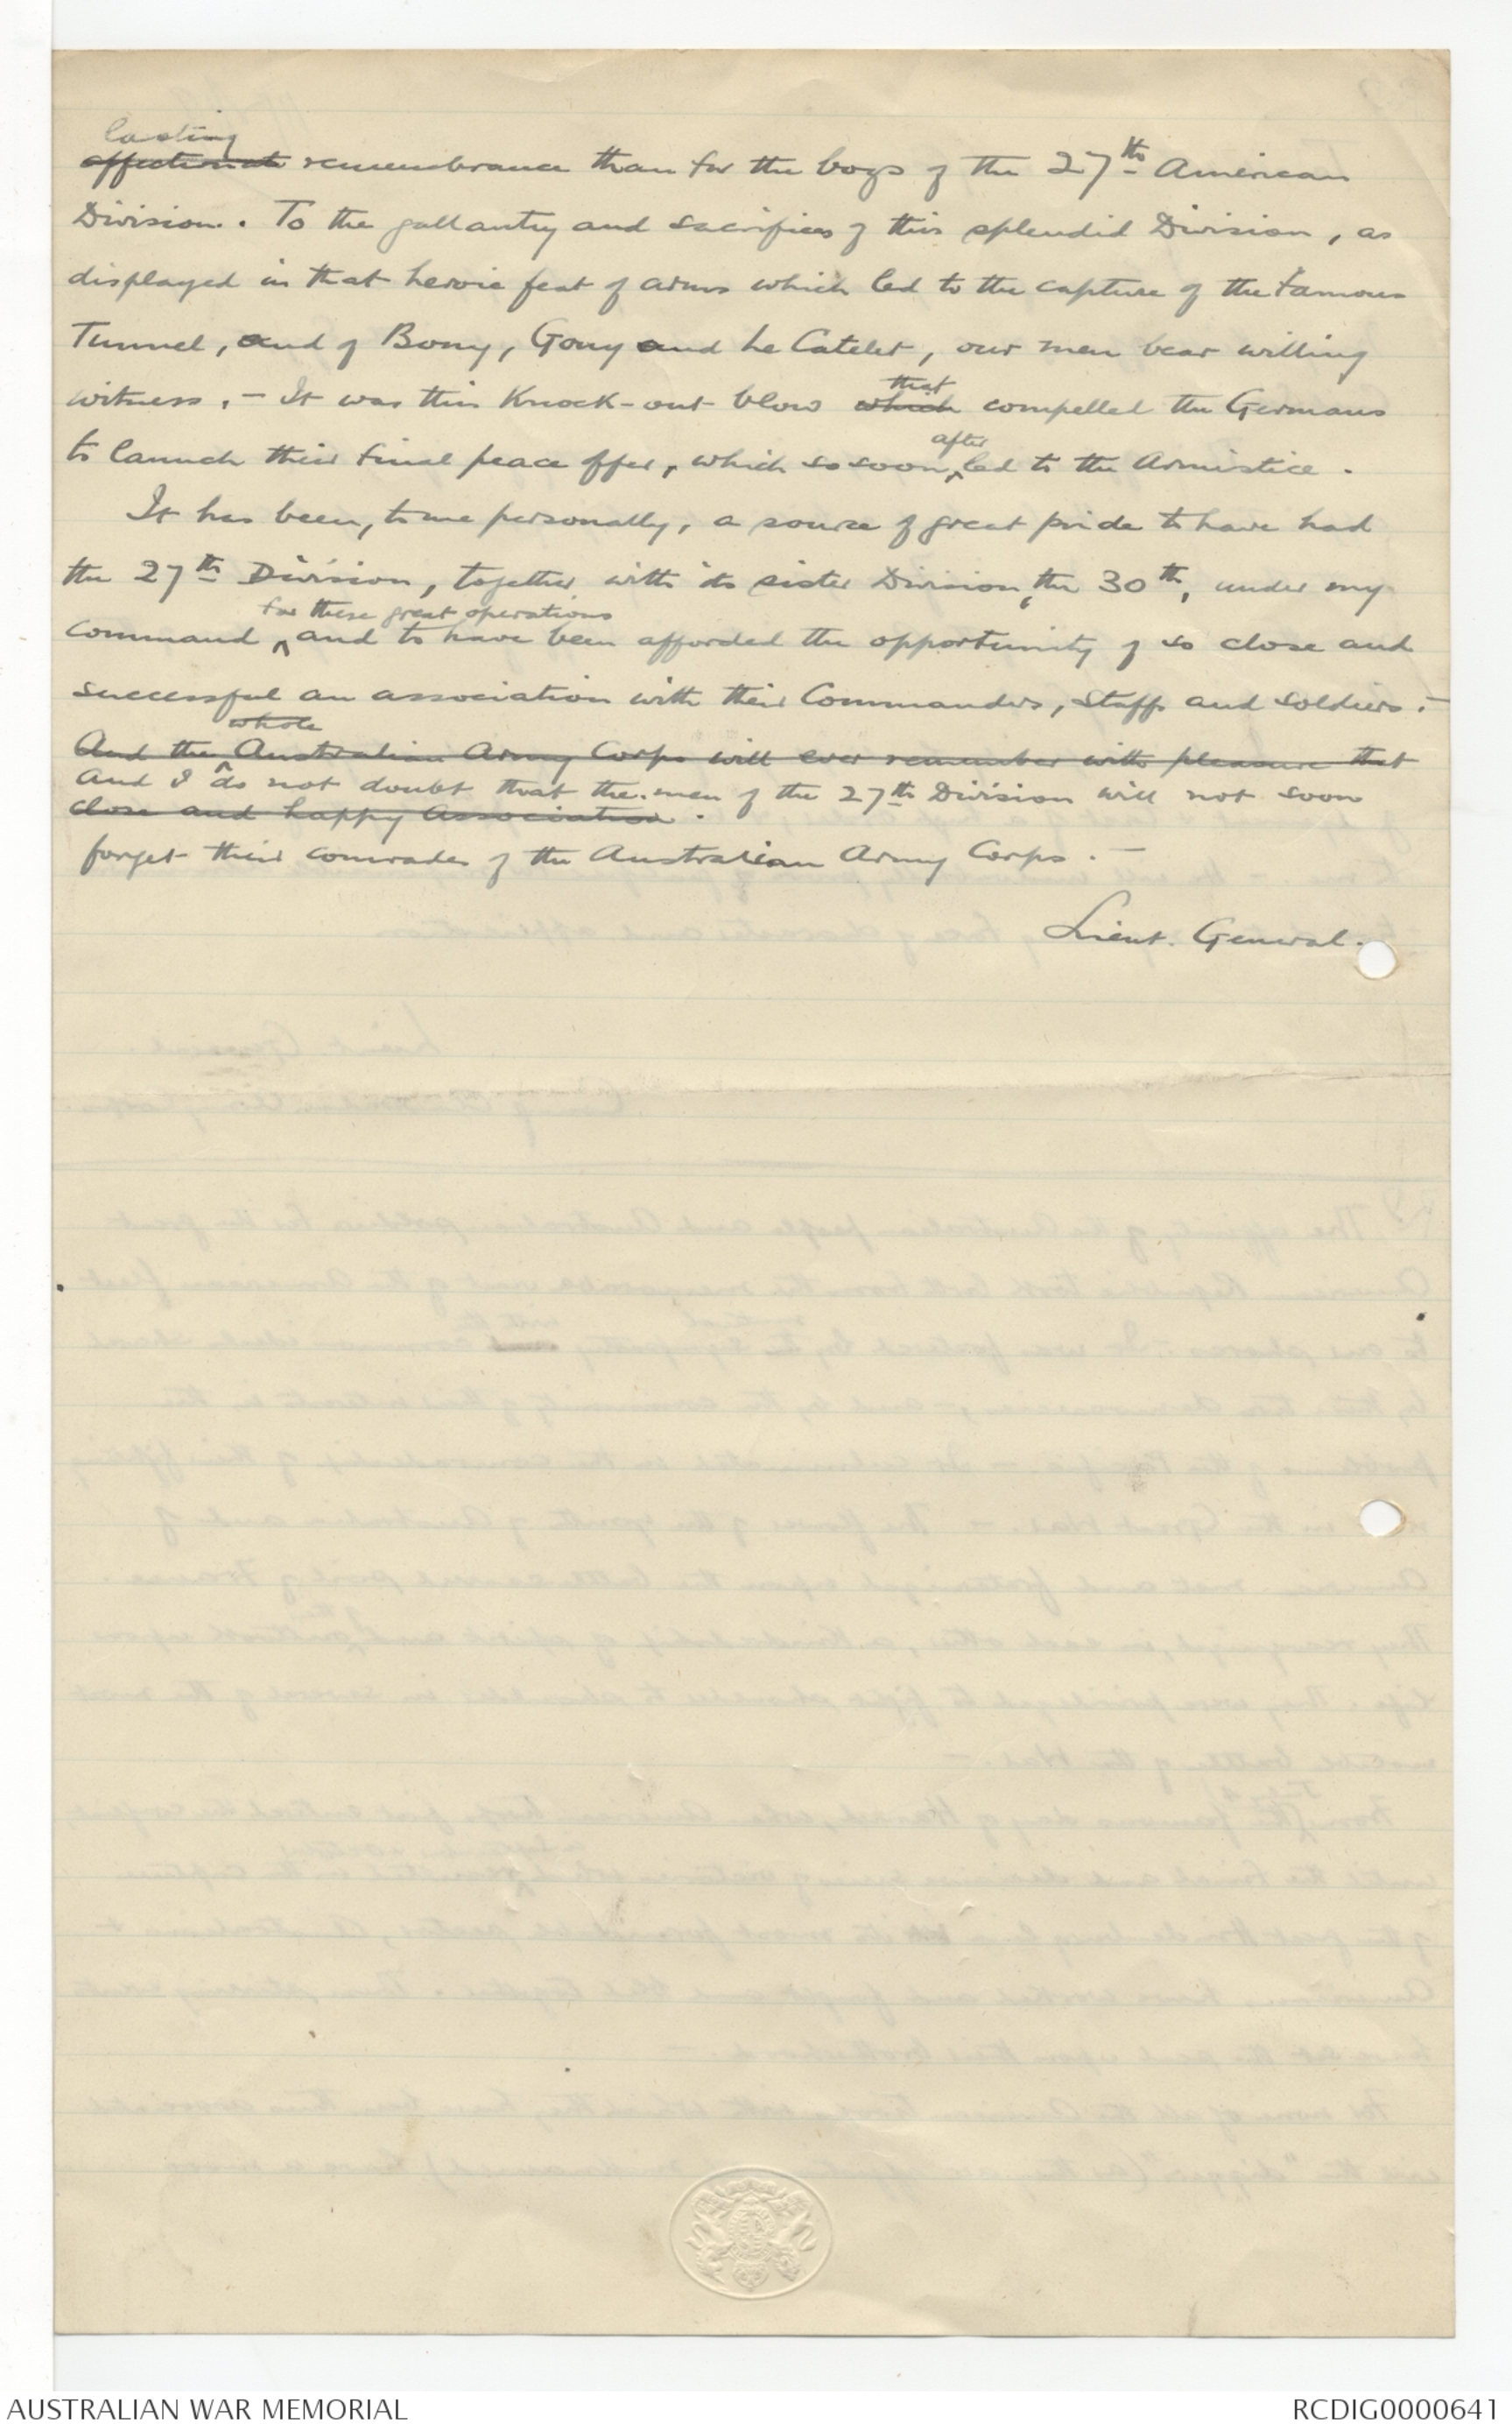 lasting
affectionate remembrance than for the boys of the 27th American
Division. To the gallantry and sacrifices of this splendid Division, as
displayed in that heroic feat of arms which led to the capture of the famous
Tunnel, and of Bony, Gouy and Le Catelet, our men bear willing
that
witness. – It was this knock-out blow which compelled the Germans
after
to launch their final peace offer, which so soon led to the Armistice.
It has been, to me personally, a source of great pride to have had
the 27th Division, together with its sister Division, the 30th, under my
for these great operations
command and to have been afforded the opportunity of so close and
successful an association with their Commanders, Staffs and soldiers. –
whole
And the Australian Army Corps will ever remember with pleasure that
And I do not doubt that the men of the 27th Division will not soon
close and happy association.
forget their comrades of the Australian Army Corps. –
Lieut. General.
AUSTRALIAN WAR MEMORIAL
RCDIG0000641